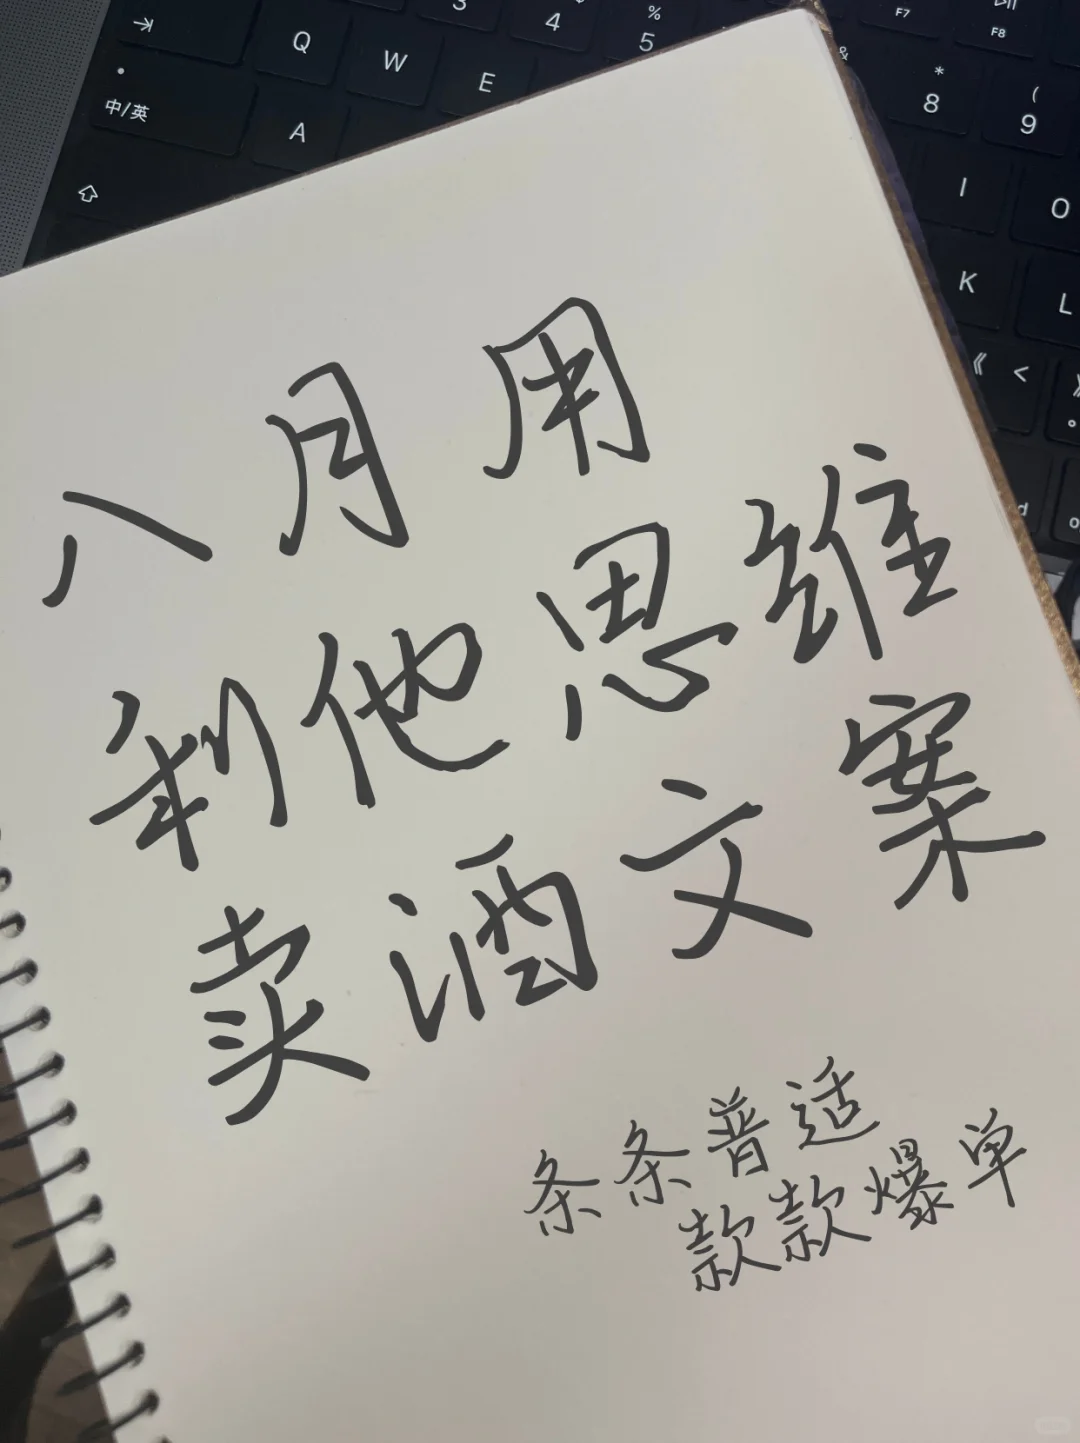 3
4
%
5
F7
F8
Q
W
E
&
*
8
(
9
中/英
A
I
O
K
L
《 <
》
。
八月用
利他思维
卖酒文案
条条普适
款款爆单